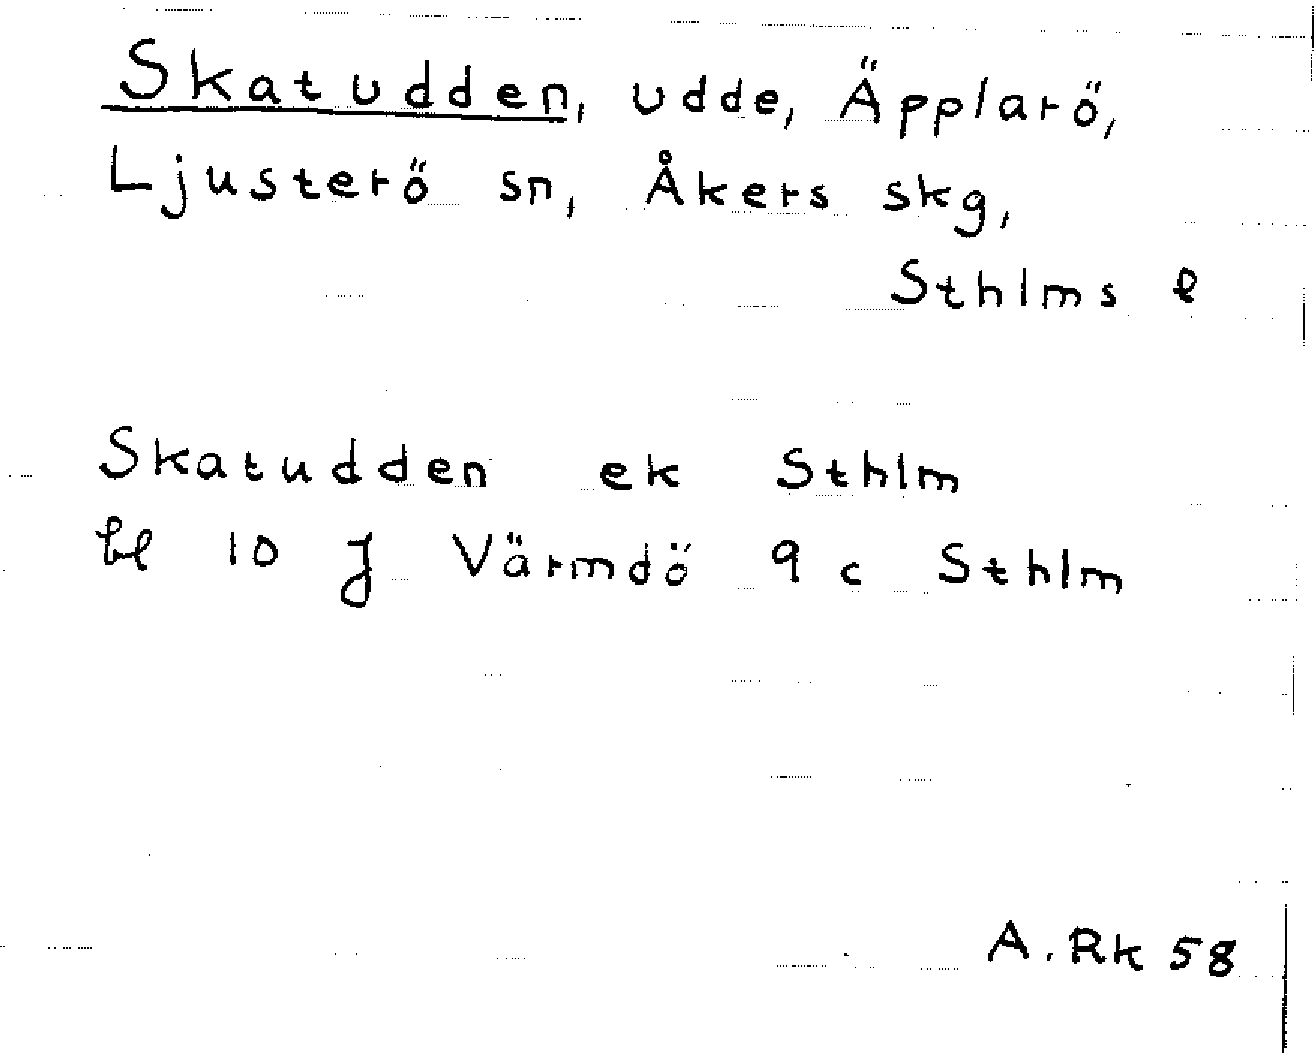 Skatudden, udde, Äpplarö,
Ljusterö sn, Åkers skg,
Sthlms l
Skatudden ek Sthlm
bl 10 J Värmdö 9 c Sthlm
A. Rk 58